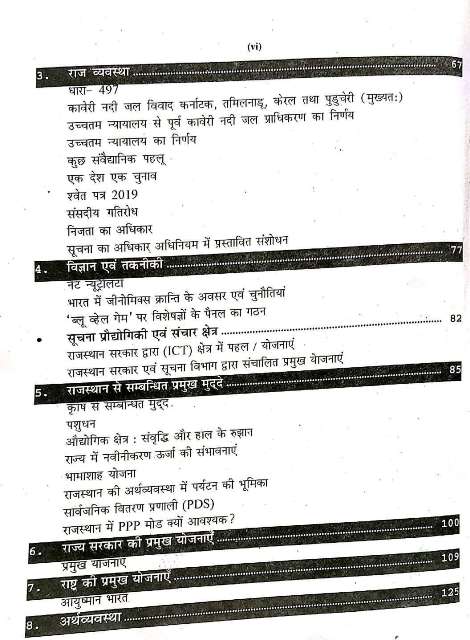 (vi)
3. राज व्यवस्था ........ 67
धारा- 497
कावेरी नदी जल विवाद कर्नाटक, तमिलनाडू, केरल तथा पुडुचेरी (मुख्यत:)
उच्चतम न्यायालय से पूर्व कावेरी नदी जल प्राधिकरण का निर्णय
उच्चतम न्यायालय का निर्णय
कुछ संवैद्यानिक पहलू
एक देश एक चुनाव
श्वेत पत्र 2019
संसदीय गतिरोध
निजता का अधिकार
सूचना का अधिकार अधिनियम में प्रस्तावित संशोधन
4. विज्ञान एवं तकनीकी ........ 77
नेट न्यूट्रीलटी
भारत में जीनोमिक्स क्रान्ति के अवसर एवं चुनौतियां
'ब्लू व्हेल गेम' पर विशेषज्ञों के पैनल का गठन
• सूचना प्रौद्योगिकी एवं संचार क्षेत्र ........ 82
राजस्थान सरकार द्वारा (ICT) क्षेत्र में पहल / योजनाएं
राजस्थान सरकार एवं सूचना विभाग द्वारा संचालित प्रमुख योजनाएं
5. राजस्थान से सम्बन्धित प्रमुख मुद्दे ........ 85
कृषि से सम्बन्धित मुद्द
पशुधन
औद्योगिक क्षेत्र : संवृद्धि और हाल के रुझान
राज्य में नवीनीकरण ऊर्जा की संभावनाएं
भामाशाह योजना
राजस्थान की अर्थव्यवस्था में पर्यटन की भूमिका
सार्वजनिक वितरण प्रणाली (PDS)
राजस्थान में PPP मोड क्यों आवश्यक ?
6. राज्य सरकार की प्रमुख योजनाएँ ........ 100
प्रमुख योजनाएं
7. राष्ट्र की प्रमुख योजनाएँ ........ 109
आयुष्मान भारत
8. अर्थव्यवस्था ........ 125